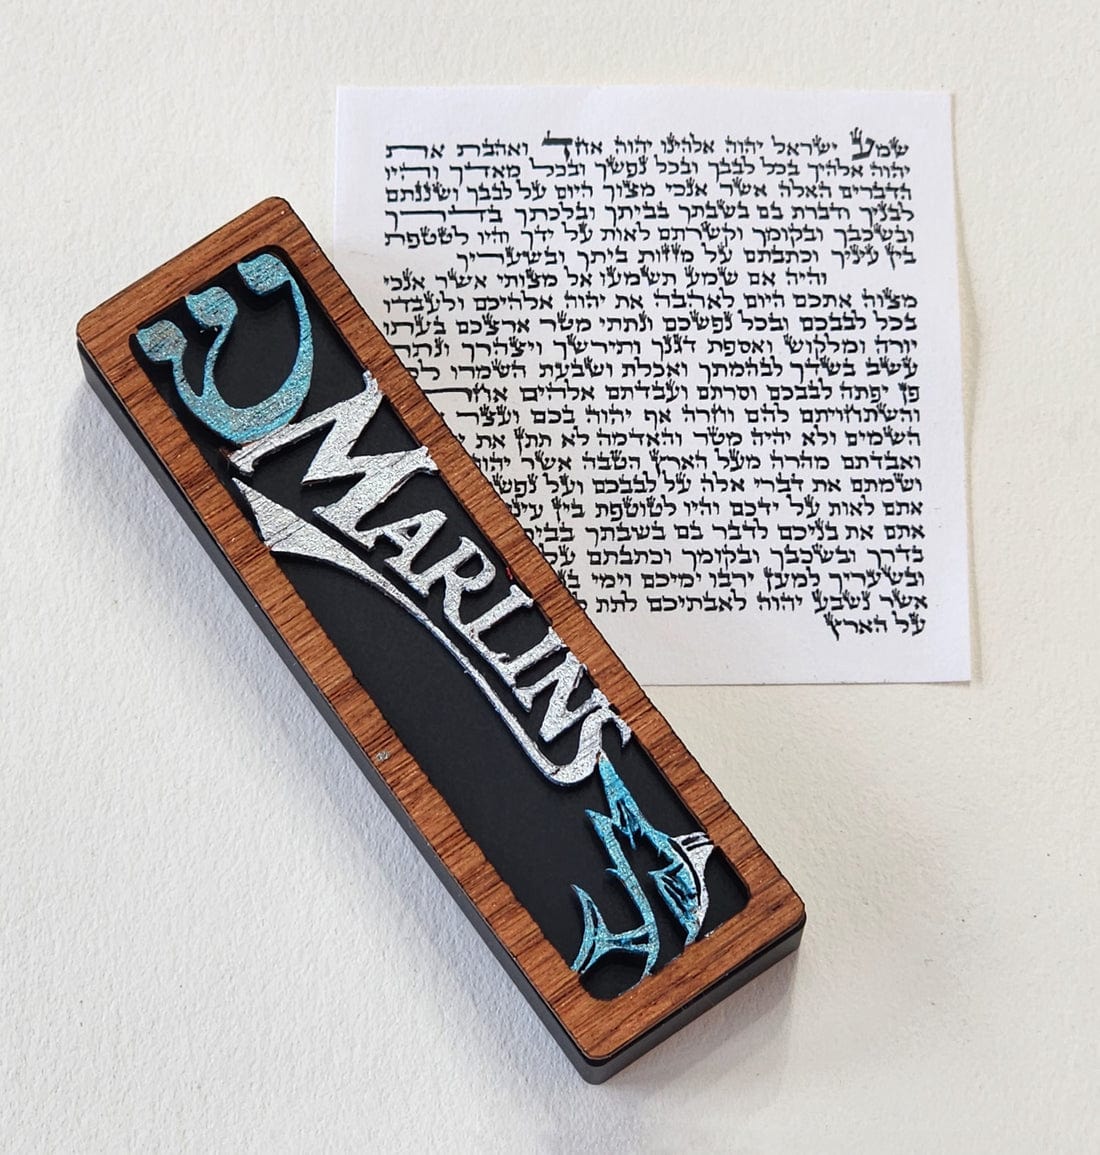 ש
MARLINS
שמע ישראל יהוה אלהינו יהוה אחד ואהבת את
יהוה אלהיך בכל לבבך ובכל נפשך ובכל מאדך והיו
הדברים האלה אשר אנכי מצוך היום על לבבך ושננתם
לבניך ודברת בם בשבתך בביתך ובלכתך בדרך
ובשכבך ובקומך וקשרתם לאות על ידך והיו לטטפת
בין עיניך וכתבתם על מזזות ביתך ובשעריך
והיה אם שמע תשמעו אל מצותי אשר אנכי
מצוה אתכם היום לאהבה את יהוה אלהיכם ולעבדו
בכל לבבכם ובכל נפשכם ונתתי מטר ארצכם בעתו
יורה ומלקוש ואספת דגנך ותירשך ויצהרך
עשב בשדך לבהמתך ואכלת ושבעת השמרו
פן יפתה לבבכם וסרתם ועבדתם אלהים
והשתחויתם להם וחרה אף יהוה בכם ועצר
השמים ולא יהיה מטר והאדמה לא תתן את
ואבדתם מהרה מעל הארץ הטבה אשר
ושמתם את דברי אלה על לבבכם ועל
אתם לאות על ידכם והיו לטוטפת בין
אתם את בניכם לדבר בם בשבתך
בדרך ובשכבך ובקומך וכתבתם על
ובשעריך למען ירבו ימיכם וימי
אשר נשבע יהוה לאבתיכם לתת
על הארץ